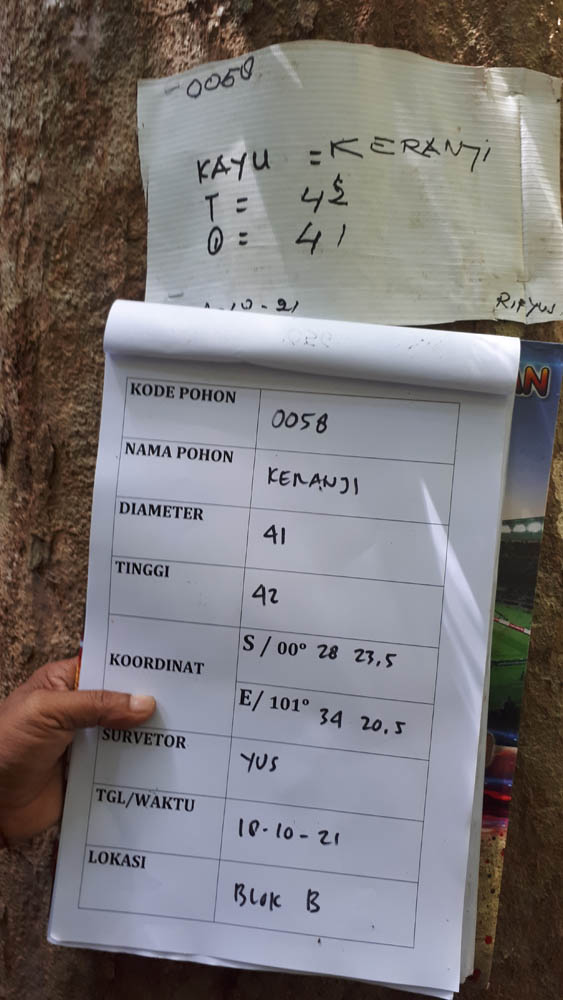 0058
KAYU = KERANJI
T = 42
Ø = 41
-10-21
RIFYUS
AN
KODE POHON 0058
NAMA POHON KERANJI
DIAMETER 41
TINGGI 42
KOORDINAT S / 00° 28 23,5
E/ 101° 34 20,5
SURVETOR YUS
TGL/WAKTU 18-10-21
LOKASI BLOK B